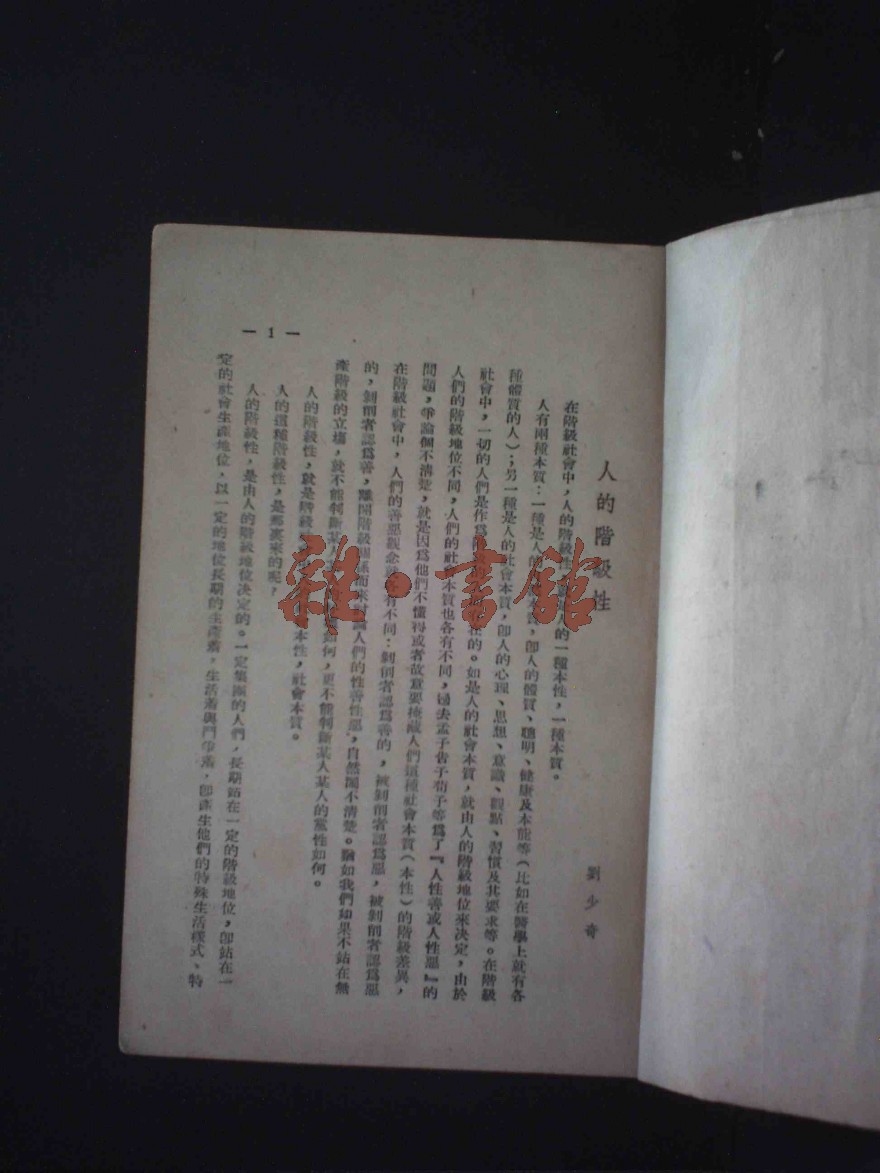 人的階級性
劉少奇
在階級社會中，人的階級性，人的一種本性，一種本質。
人有兩種本質：一種是人的本質，卽人的體質、聰明、健康及本能等（比如在醫學上就有各
種體質的人）；另一種是人的社會本質，卽人的心理、思想、意識、觀點、習慣及其要求等。在階級
社會中，一切的人們是作爲在的。如是人的社會本質，就由人的階級地位來決定，由於
人們的階級地位不同，人們的社會本質也各有不同，過去孟子告子荀子等爲了『人性善或人性惡』的
問題，爭論個不清楚，就是因爲他們不懂得或者故意要掩藏人們這種社會本質（本性）的階級差異，
在階級社會中，人們的善惡觀念各有不同：剝削者認爲善的，被剝削者認爲惡，被剝削者認爲惡
的，剝削者認爲善，離開階級關係而來討論人們的性善性惡，自然鬧不清楚。猶如我們如果不站在無
產階級的立場，就不能判斷某人如何，更不能判斷某人某人的黨性如何。
人的階級性，就是階級本性，社會本質。
人的這種階級性，是那裏來的呢？
人的階級性，是由人的階級地位決定的。一定集團的人們，長期站在一定的階級地位，卽站在一
定的社會生產地位，以一定的地位長期的生產着，生活着與鬥爭着，卽產生他們的特殊生活樣式、特
— 1 —
雜·書館